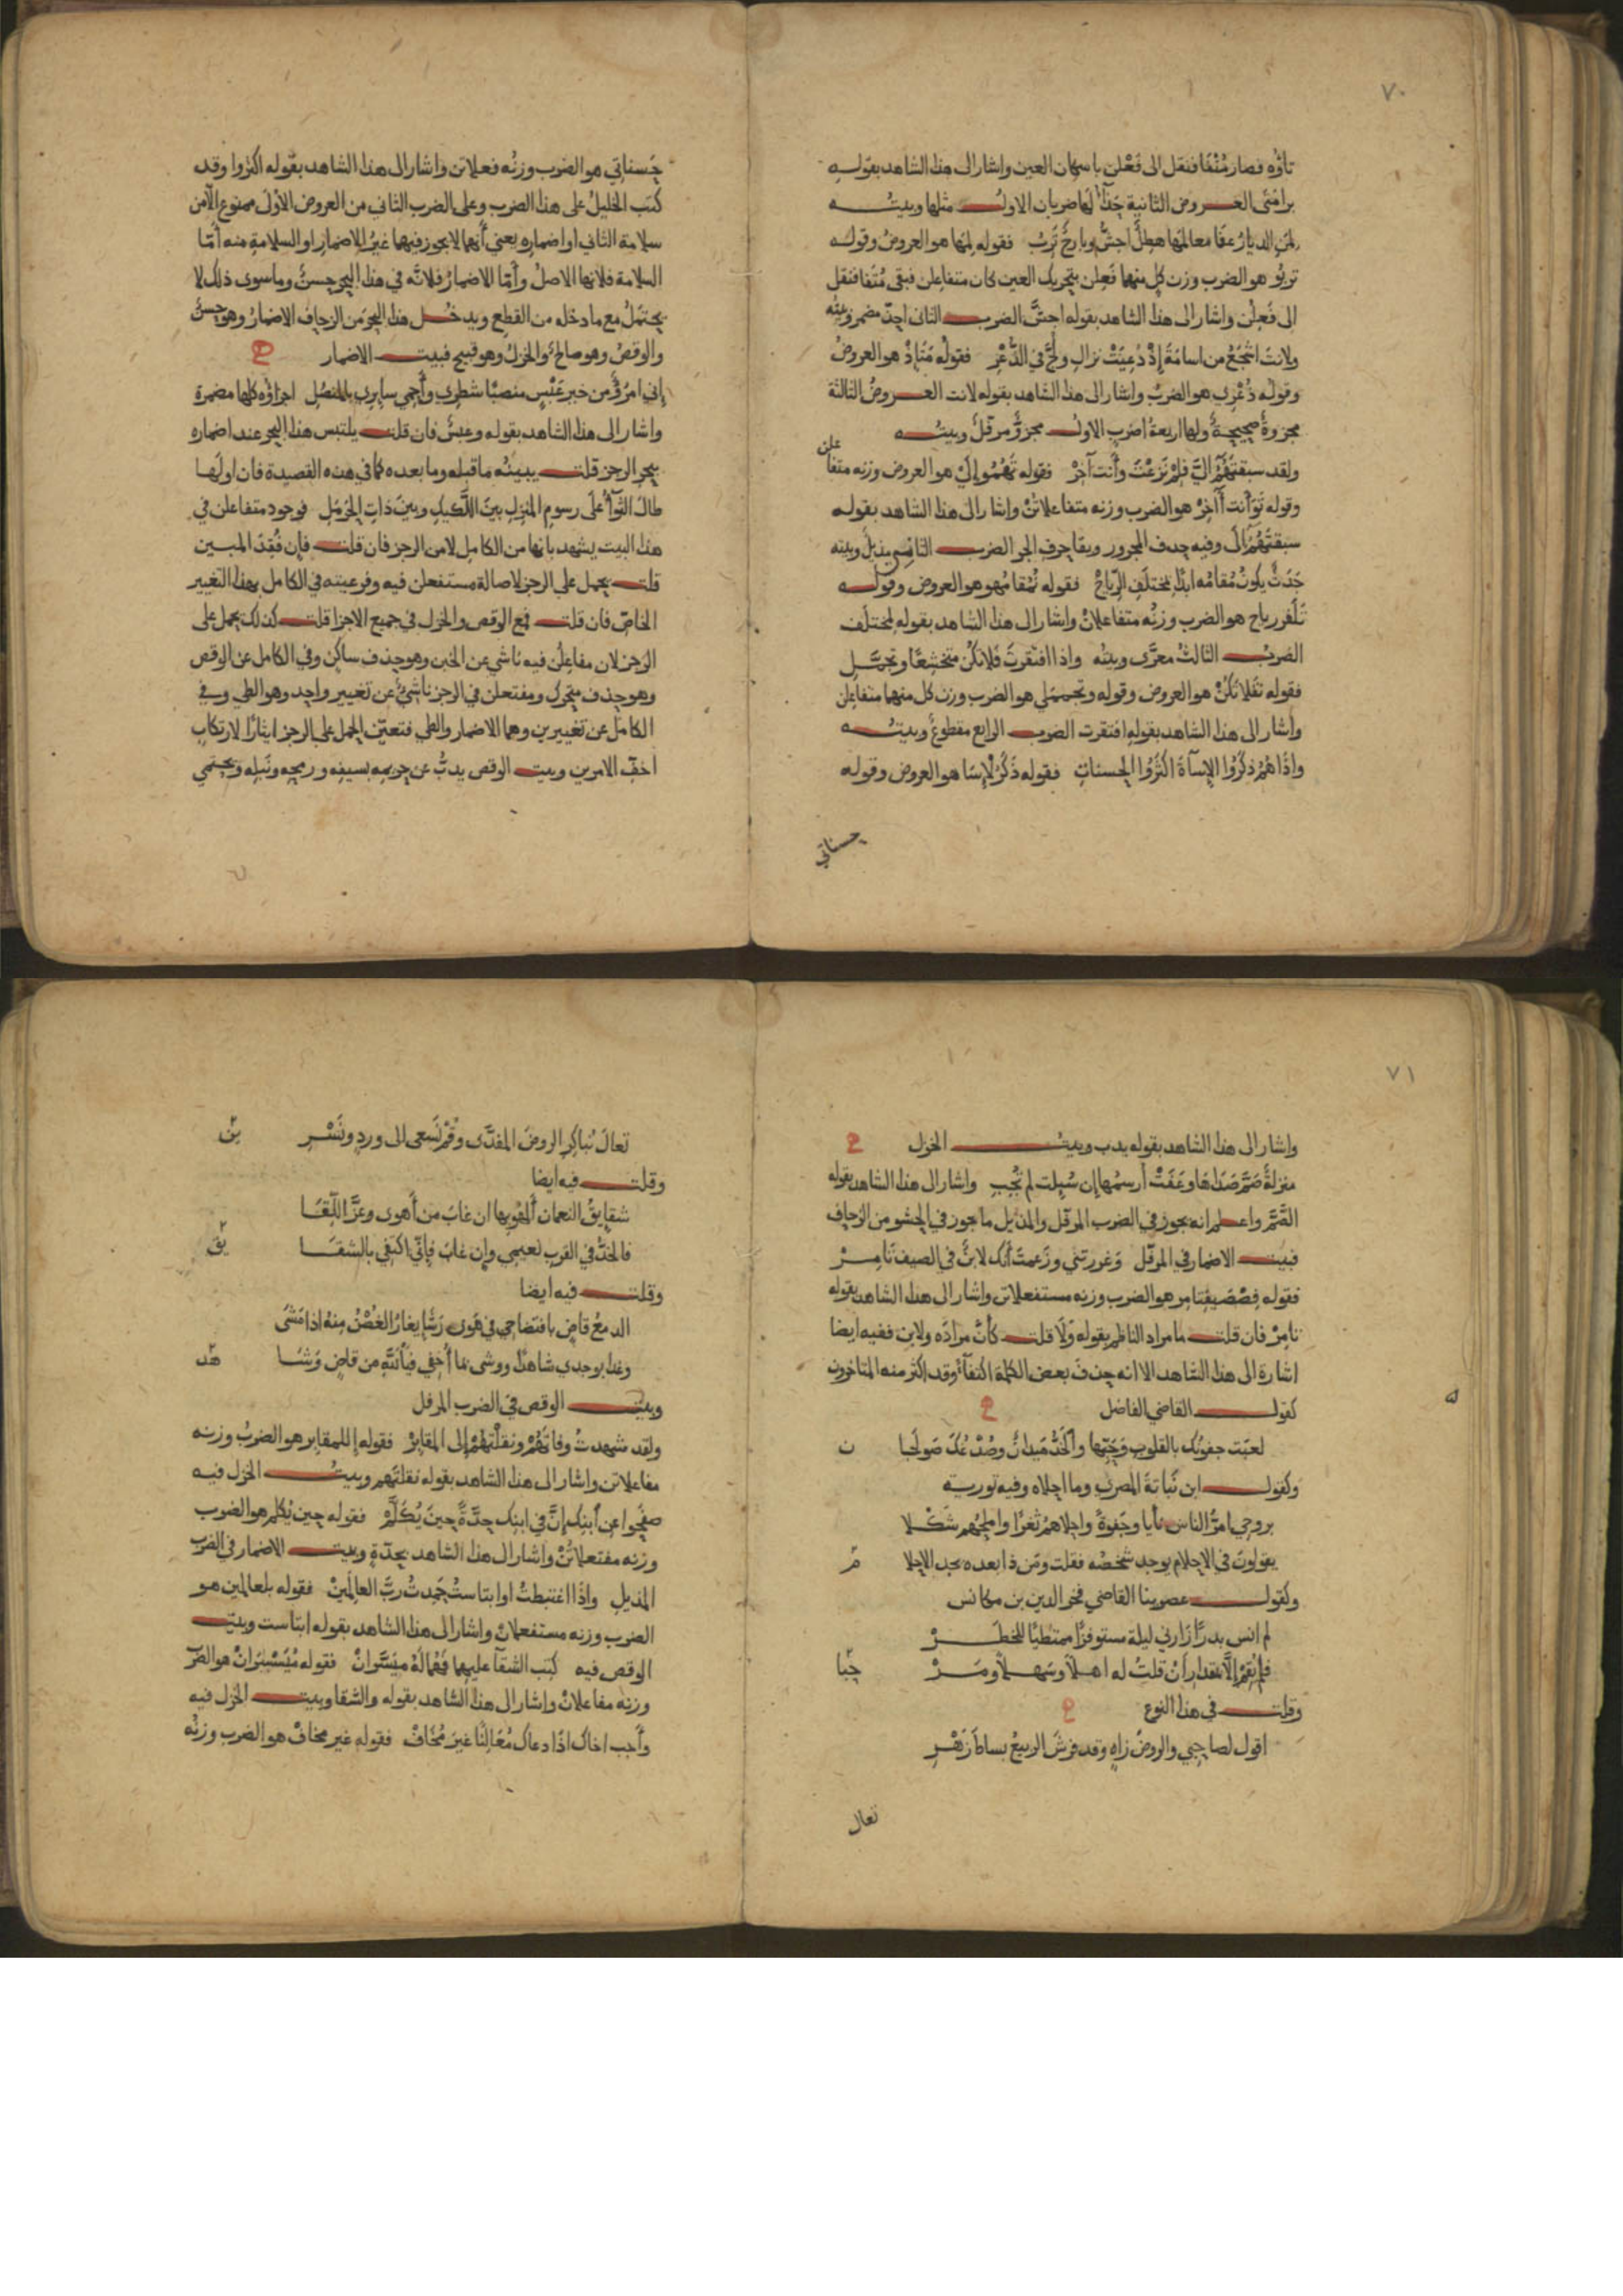 ٧٠
تاؤه فصار مُتْفَا فنقل الى فَعْلن باسكان العين واشار الى هذا الشاهد بقوله
برامتى العروض الثانية حَذّآ لها ضربان الاول مثلها وبيته
لمن الديارُ عفَا معالمَها هطِلٌ اجشُّ وبارحٌ تَرِبُ فقوله لمَها هو العروض وقوله
تربُو هو الضرب وزن كل منهما فَعِلن بتحريك العين كان متفاعلن فبقى مُتَفا فنقل
الى فَعِلُن واشار الى هذا الشاهد بقوله اجشَّ الضرب الثانى احذّ مضمر وبيته
ولانتَ اشْجَعُ من اسامَةَ إِذْ دُعِيَتْ نزالِ ولُجَّ في الذُّعْرِ فقوله مَتَإِذْ هو العروضُ
وقوله ذُعْرِي هو الضربُ واشار الى هذا الشاهد بقوله لانت العروضُ الثالثة
مجزوةٌ صحيحةٌ ولها اربعة اضرب الاول مجزؤٌ مرفلٌ وبيته
ولقد سبقتَهُمُ اليَّ فلِمْ نَزَعْتَ وأَنت آخِرْ فقوله تَهُمُو إِلَيْ هو العروض وزنه متفا
علن
وقوله تَوَأَنت أَاخِرْ هو الضرب وزنه متفاعلاتنْ واشار الى هذا الشاهد بقوله
سبقتَهُمُ الَى وفيه حذف المجرور وبقا حرف الجر الضرب الثانى مذيلٌ وبيته
جَدَثٌ يكونُ مُقامُه ابدًا بمختلَفِ الرِّياحْ فقوله نُمُقامُهو هو العروض وقوله
تَلَفِررياح هو الضرب وزنُه متفاعلانْ واشار الى هذا الشاهد بقوله بمختلَف
الضربُ الثالثُ معرًّى وبيتُه واذا افتقرتَ فلا تكُن متخشّعًا وتجمَّل
فقوله تَفَلاتَكُنْ هو العروض وقوله وتجممَلي هو الضرب وزن كل منهما متفاعلن
واشار الى هذا الشاهد بقولهِ افتقرت الضرب الرابع مقطوعٌ وبيته
واذَا هُمُ ذكَرُوا الإِسآةَ اكثَرُوا الحسناتِ فقوله ذَكَرُلْإِسَا هو العروض وقوله
حسناتي
حَسناتِي هو الضرب وزنُه فعلاتن واشار الى هذا الشاهد بقوله اكثروا وقد
كتَب الخليلُ على هذا الضرب وعلى الضرب الثاني من العروض الاوْلَى ممنوع الّا من
سلامة الثاني او اضماره يعني أنهما لا يجوز فيهما غيرُ الاضمارِ او السلامةِ منه أمّا
السلامة فلانها الاصلُ وأمّا الاضمارُ فلانّه في هذا البحر حسنٌ وما سوى ذلك لا
يحتملُ مع ما دخله من القطع ويدخُل هذا البحرَ من الزحافِ الاضمارُ وهو حسنٌ
والوقصُ وهو صالحٌ والخزلُ وهو قبيح فبيت الاضمار
إِني امرُؤٌ من خير عَبْسٍ منصبًا شطري وأَحمِي سايرِي بالمنصُلِ اجزاؤه كلها مضمرة
واشار الى هذا الشاهد بقوله وعبسٌ فان قلت يلتبس هذا البحر عند اضماره
ببحر الرجز قلت يبينُه ما قبله وما بعده كما في هذه القصيدة فان اولَها
طالَ الثوآُ على رسوم المنزِلِ بينَ اللَّكيكِ وبينَ ذاتِ الحَرْمَلِ فوجود متفاعلن في
هذا البيت يشهد بانها من الكامل لا من الرجز فان قلت فإن فُقِدَ المبين
قلت يحمل علي الرجز لاصالة مستفعلن فيه وفرعيته في الكامل بهذا التغيير
الخاصّ فان قلت فمع الوقص والخزل في جميع الاجزا قلت كذلك يحمل على
الرجز لان مفاعِلُن فيه ناشي عن الخبن وهو حذف ساكن وفي الكامل عن الوقص
وهو حذف متحرك ومفتعلن في الرجز ناشئٌ عن تغيير واحد وهو الطي وفي
الكامل عن تغييرين وهما الاضمار والطي فتعيّن الحمل على الرجز ايثارًا لارتكابِ
اخفّ الامرين وبيت الوقص يذبُّ عن حريمه بسيفه ورمحه ونبله ويحتمي
٧١
واشار الى هذا الشاهد بقوله يذب وبيت الخزل
منزلةٌ صَمَّ صَدَاهَا وعَفَتْ أَرسمُها إِن سُيِلت لم تُجِبِ واشار الى هذا الشاهد بقوله
الصَّمَّ واعلم انه يجوز في الضرب المرفل والمذيل ما يجوز في الحشو من الزحاف
فبيت الاضمار في المرفل وَغررتَني وزَعمتَ أنّك لابنٌ في الصيف تَامِرْ
فقوله فِصْصَيفِتَامِر هو الضرب وزنه مستفعلاتن واشار الى هذا الشاهد بقوله
تامِرْ فان قلت ما مراد الناظم بقوله وَلَا قلت كأَنّ مرادَه ولابن ففيه ايضا
اشارة الى هذا الشاهد الا انه حذفَ بعضَ الكلمةِ اكتفآءً وقد اكثر منه المتاخرون
كقول القاضي الفاضل
لعبَت جفونُك بالقلوبِ وَحُبّها والخَدُّ مَيدانٌ وصُدْغُكَ صَولَجَا ن
وكقول ابن نُباتةَ المصري وما احلاه وفيه تورية
بروحي امرُّ الناس نأيا وجَفوةً واحلاهمُ ثغرًا واملحُهم شَكْلا
يقولونَ في الاحلام يوجد شخصُه فقلت ومَن ذا بعده يجد الاحلا مَ
وكقول عصرينا القاضي فخر الدين بن مكانس
لم انس بدرًا زارني ليلة مستوفزًا ممتطيًا للخطَرْ
فلم يُقِمْ إلَّا بمقدار أَنْ قلتُ له اهلاً وسَهلاً ومَرْ حَبا
وقلت في هذا النوع
اقول لصاحبي والروضُ زاهٍ وقد فرشَ الربيعُ بساطَ زَهْرِ
تعال
تعالَ نُباكِرِ الروضَ المفدَّى وقُمْ نسعى الى وردٍ ونَسْرِ ينَ
وقلت فيه ايضا
شقايقُ النعمان أَلهُو بها ان غابَ من أَهوى وعَزَّ اللِّقَا
فالخدُّ في القرب نعيمي وإن غابَ فإِنّي اكتفِي بالشقَا يقِ
وقلت فيه ايضا
الدمعُ قاضٍ بافتضاحي في هَوى رَشَإٍ يغارُ الغُصْنُ مِنهُ اذا مَشَى
وغدا بوجدي شاهدًا ووشى بما أُخفِي فيا لَلهِ من قاضٍ وَشَا هدِ
وبيت الوقص في الضرب المرفل
ولقد شهِدتُ وفاتَهُمْ ونقلْتهُمْ إلى المقابِرْ فقوله إِللمقابِر هو الضربُ وزنه
مفاعلاتن واشار الى هذا الشاهد بقوله نقلتَهم وبيتُ الخزل فيه
صفَحوا عن أبنِك إنَّ في ابنِك حِدَّةً حِينَ يُكَلَّمْ فقوله حين يُكلم هو الضرب
وزنه مفتعلاتُنْ واشار الى هذا الشاهد بحدّةٍ وبيت الاضمار في الضرب
المذيل واذَا اغتبطتُ او ابتاستُ حَمِدتُ ربَّ العالمينْ فقوله بلعالمين هو
الضرب وزنه مستفعلانْ واشار الى هذا الشاهد بقوله ابتاست وبيت
الوقص فيه كُتِبَ الشقآُ عليهما فَهُمَا لَهُ ميَسَّرانْ فقوله مُيَسْسَرانْ هو الضرب
وزنه مفاعلانْ واشار الى هذا الشاهد بقوله والشقا وبيت الخزل فيه
وأَجب اخاكَ اذَا دعاكَ مُعَالِنًا غيرَ مُخَافْ فقوله غير مخافْ هو الضرب وزنُه